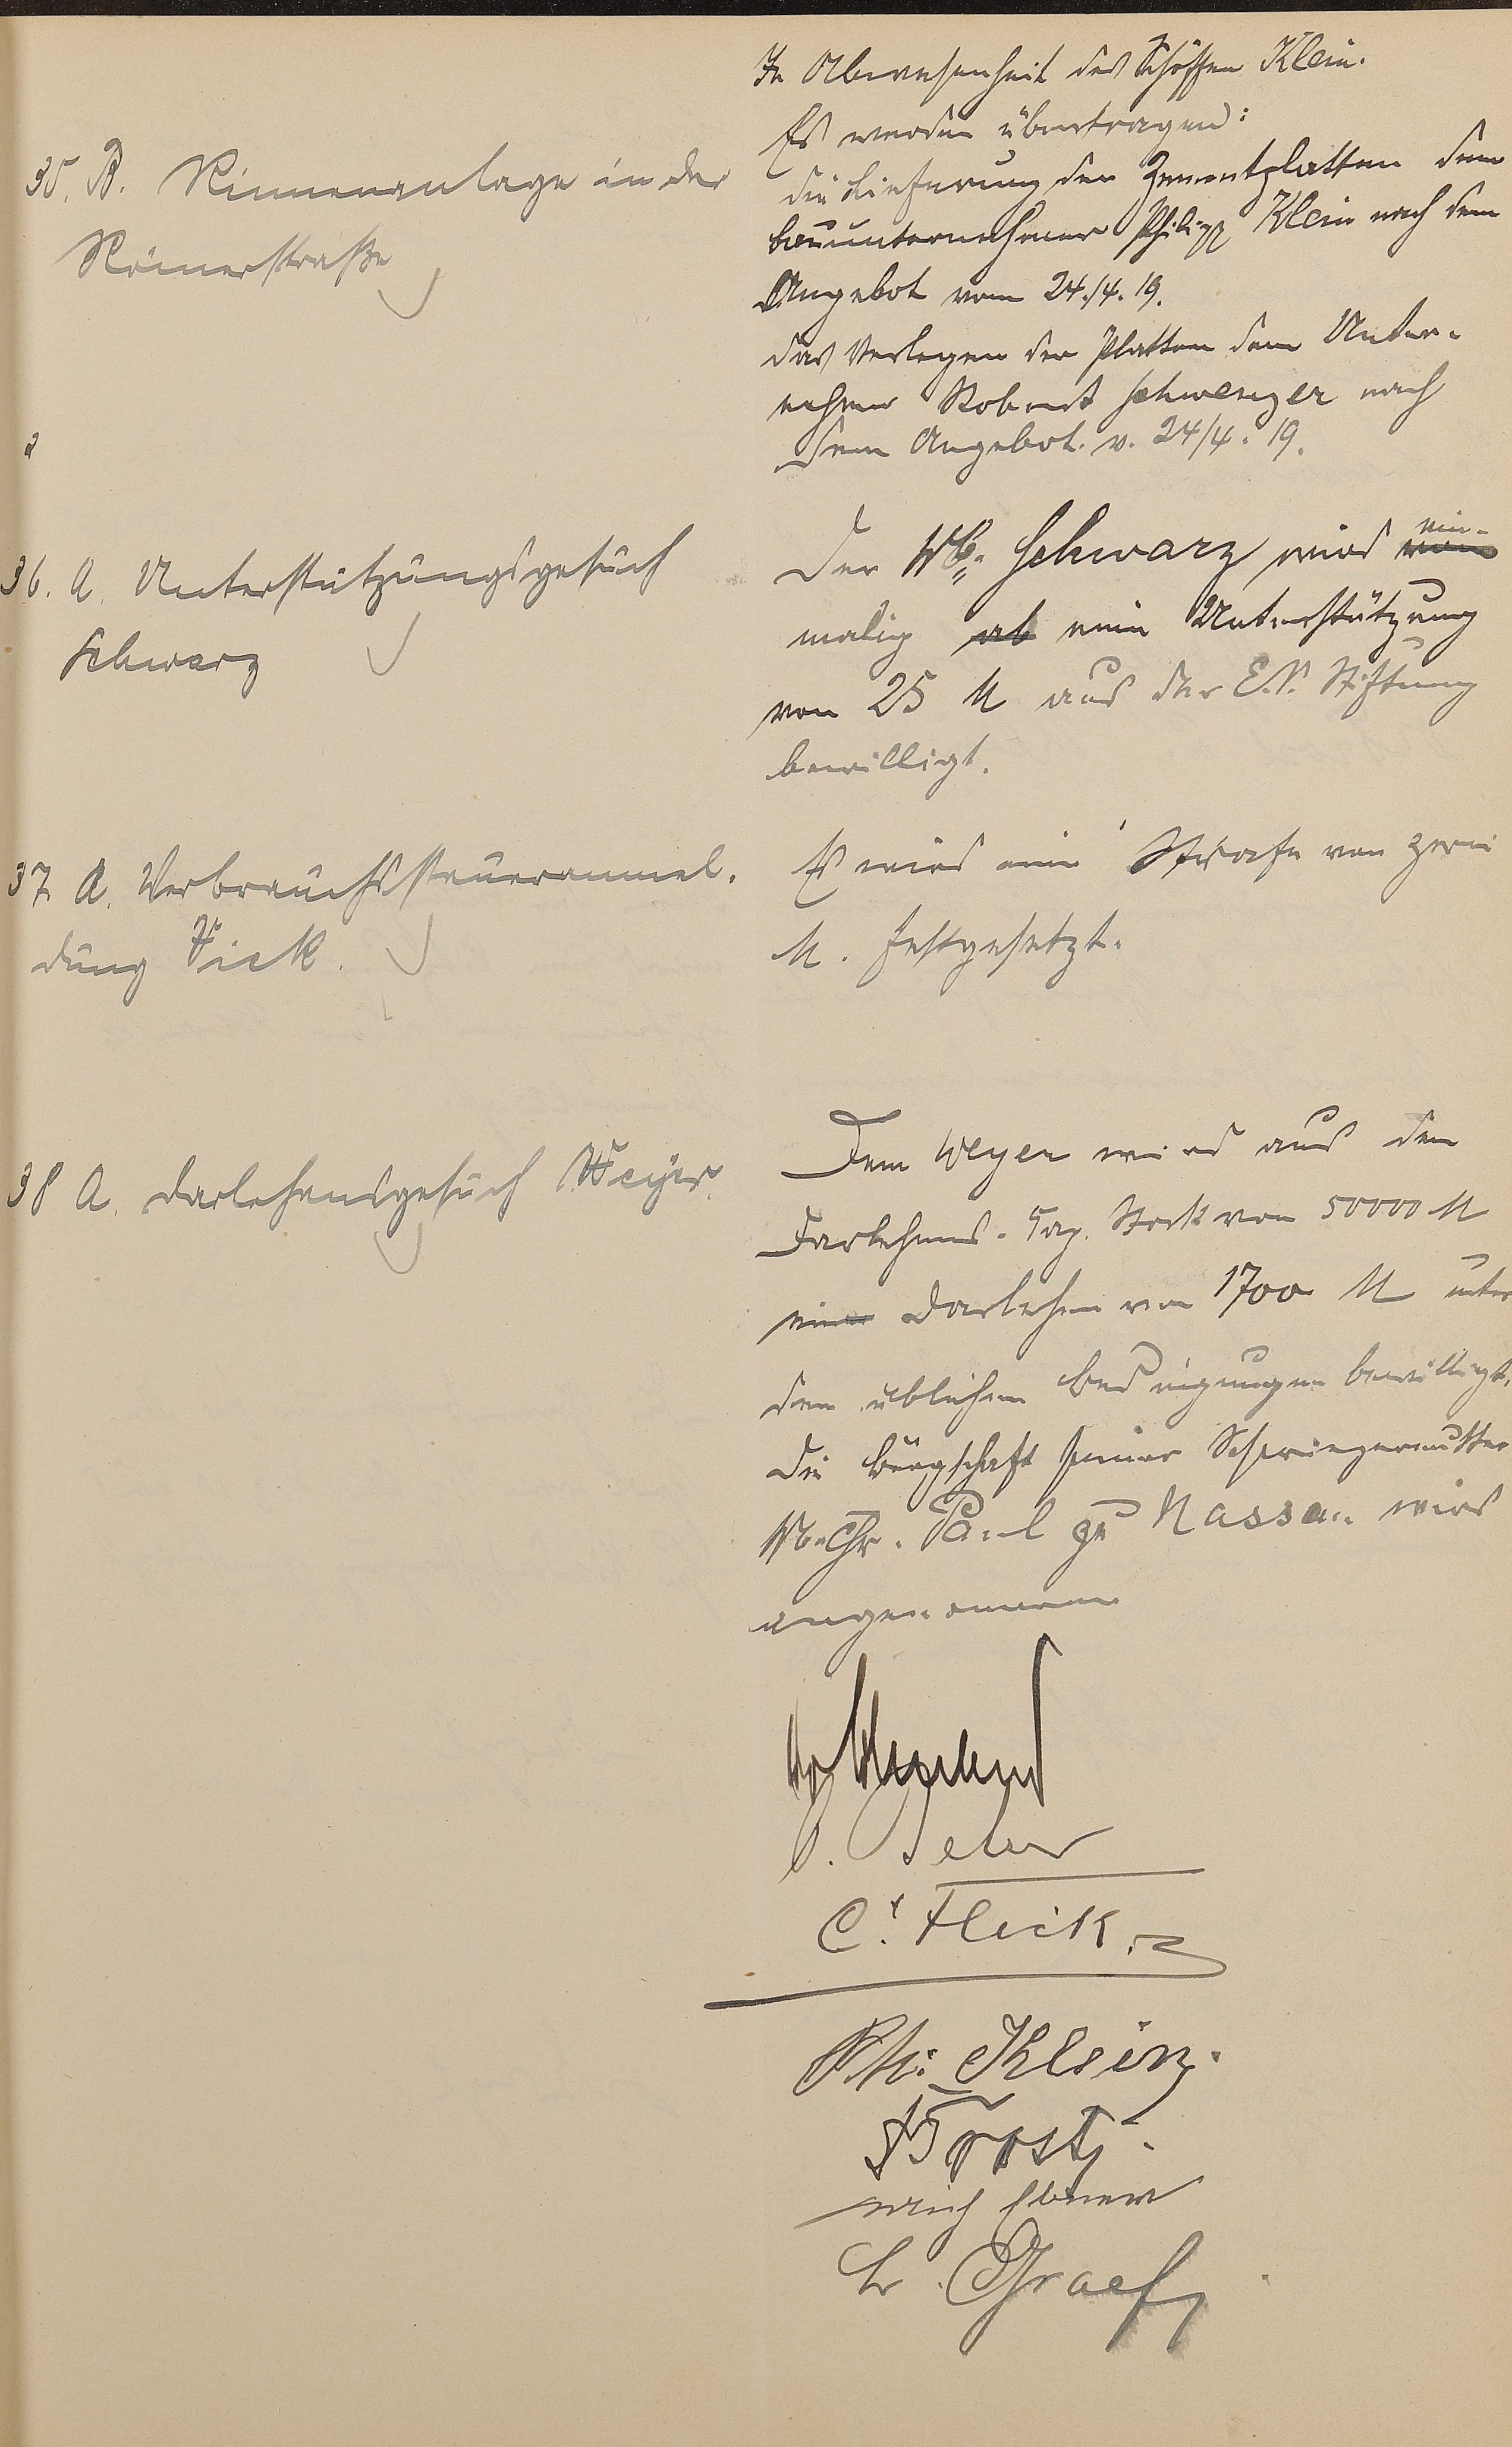 In Abwesenheit des Schöffen Klein.
35. B. Rinnenanlage in der
Römerstraße
Es werden übertragen:
die Lieferung der Zementplatten dem
Bauunternehmer Philipp Klein nach dem
Angebot vom 24./4. 19.
das Verlegen der Platten dem Unter-
nehmer Robert Schwenzer nach
dem Angebot v. 24/4. 19.
36. A. Unterstützungsgesuch
Schwarz
Der Wb. Schwarz wird ein-
malig ab eine Unterstützung
von 25 M aus der E.V. Stiftung
bewilligt.
37 A. Verbrauchssteueranmel-
dung Fick.
Es wird eine Strafe von zwei
M. festgesetzt.
38 A. Darlehensgesuch Weyer.
Dem Weyer wird aus dem
Darlehens-Kap. Stock von 50000 M
ein Darlehen von 1700 M unter
den üblichen Bedingungen bewilligt.
Die Bürgschaft seiner Schwiegermutter
Wb. Chr. Paul zu Nassau wird
angenommen
C. Fleck.
Ph. Klein.
Trost
Ebner
Graef